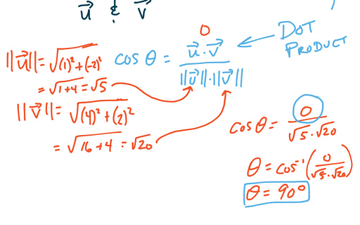 u⃗ & v⃗
0
||u⃗|| = √(1)² + (-2)²
= √1+4 = √5
||v⃗|| = √(4)² + (2)²
= √16+4 = √20
cos θ = u⃗ · v⃗ / ||u⃗|| · ||v⃗||
DOT
PRODUCT
cos θ = 0 / √5 · √20
θ = cos⁻¹ (0 / √5 · √20)
θ = 90°